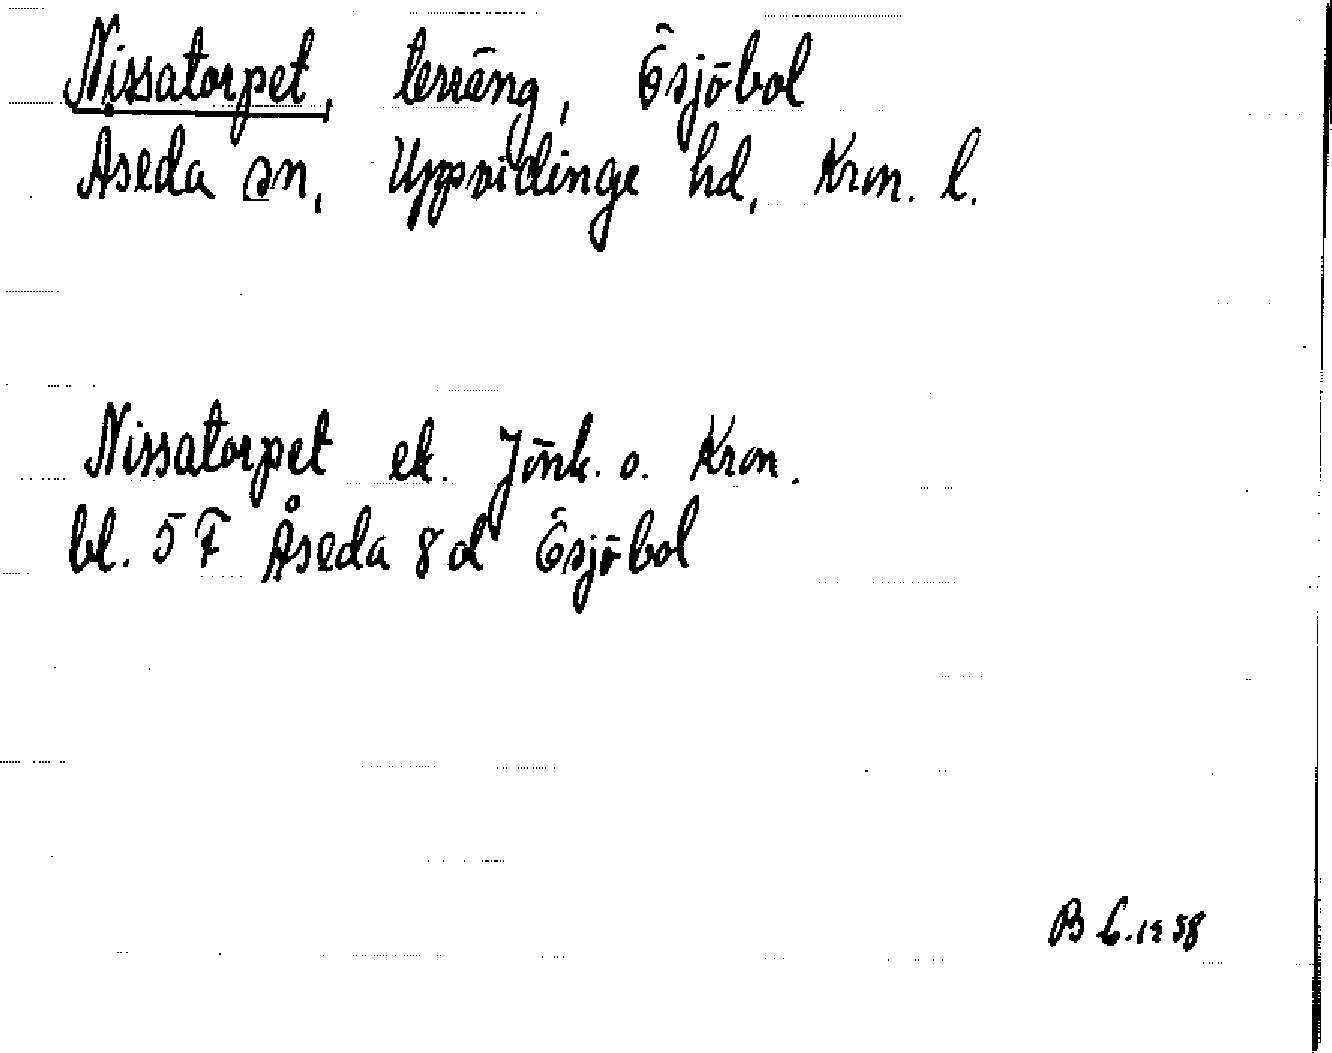 Nissatorpet, terräng, Ösjöbol
Åseda sn, Uppvidinge hd, Kron. l.
Nissatorpet ek. Jönk. o. Kron.
bl. 5 F Åseda 8 d Ösjöbol